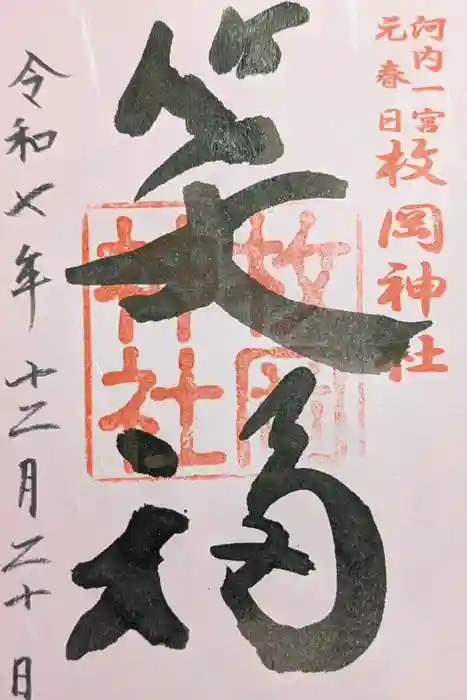 河内一宮
元春日
枚岡神社
笑福
枚岡
神社
令和七年十二月二十日